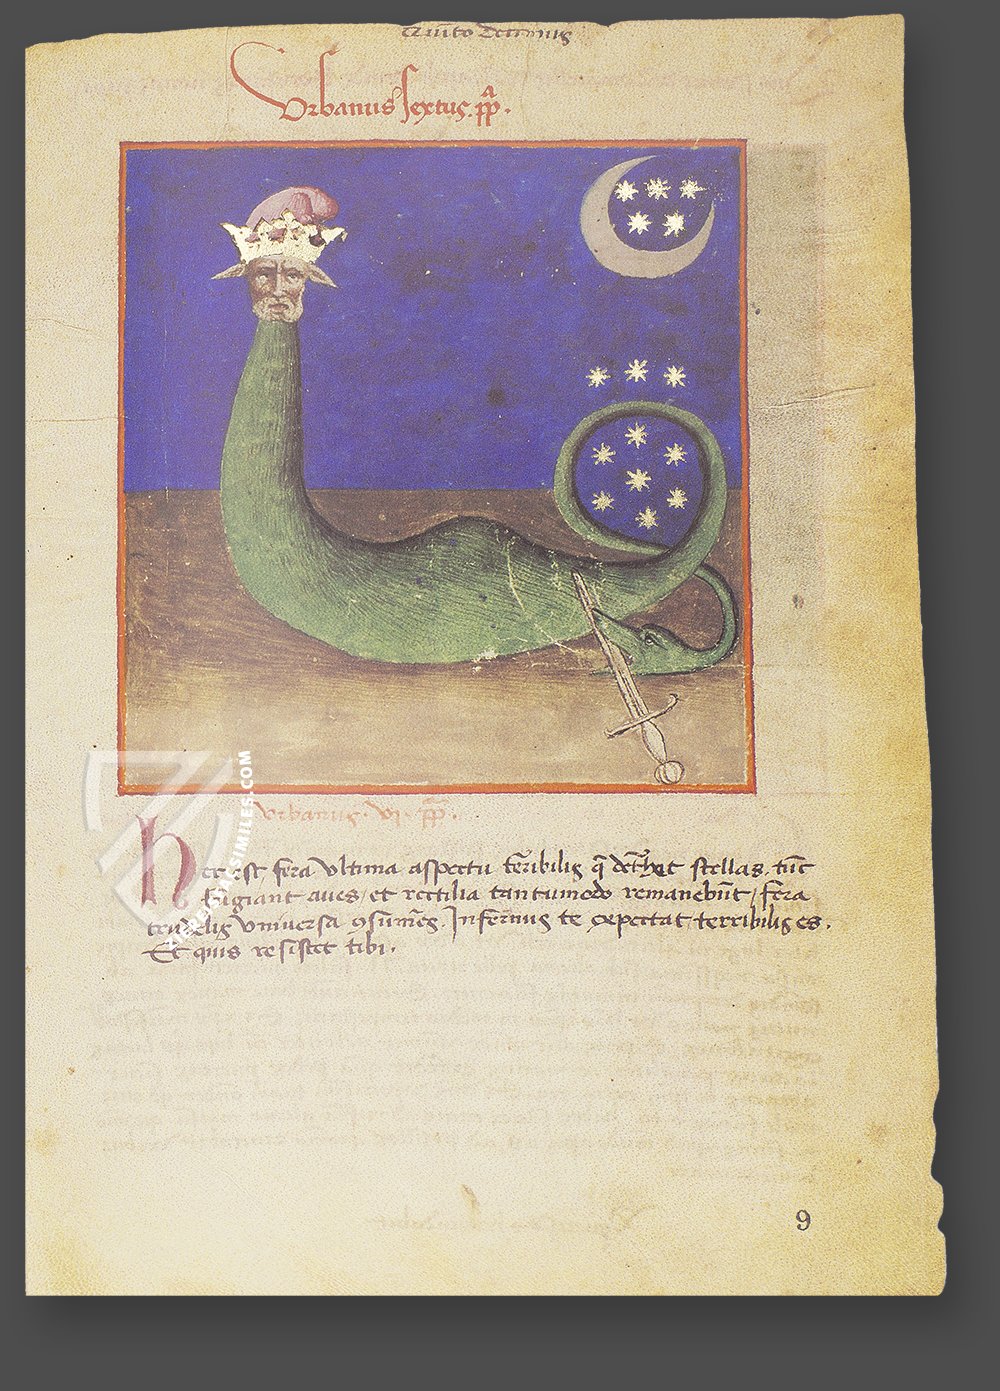 Quinto decimus
Urbanus sextus pp̄a.
Urbanus · vi · pp̄.
Hec est fera ultima aspectu terribilis q̄ det̄het stellas. tūc
fugiant aves, et reptilia tantumodo remanebūt, fera
crudelis universa ꝯsumēs. Infernus te expectat, terribilis es.
Et quis resistet tibi.
9
SIMILES.COM